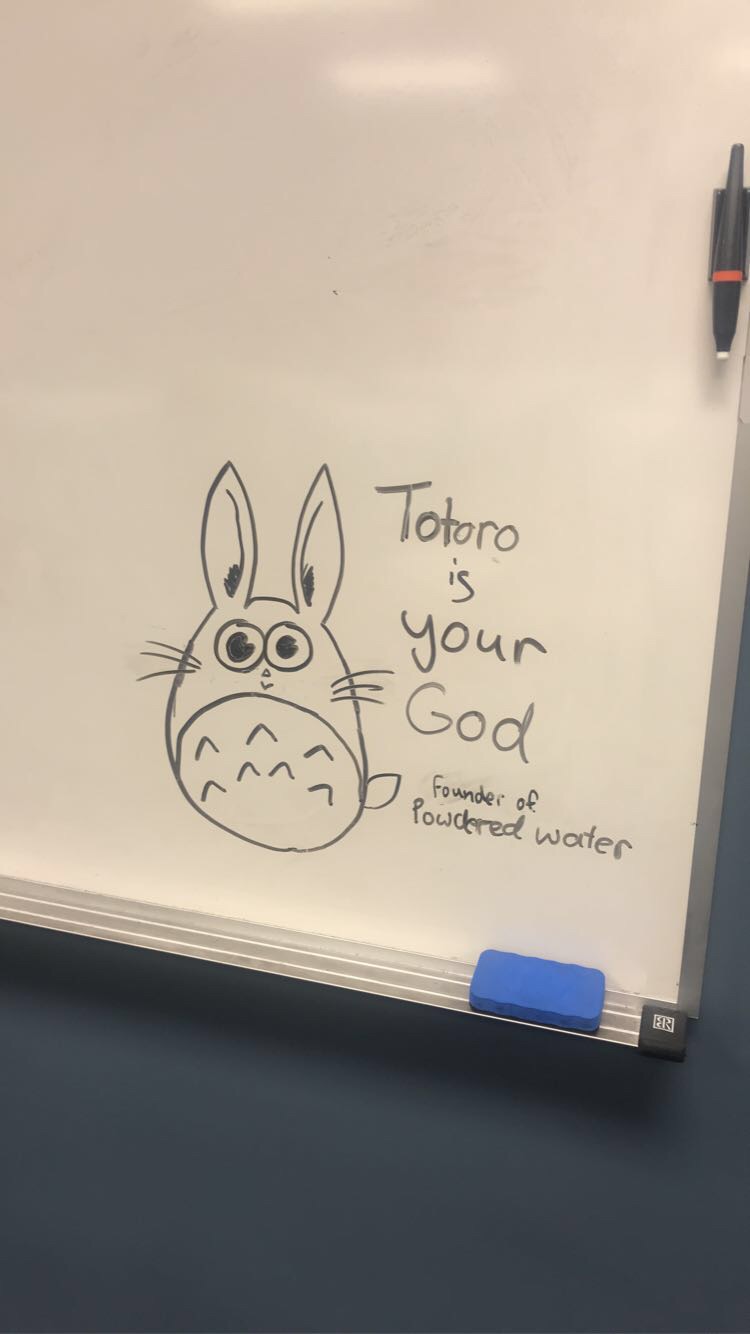 Totoro
is
your
God
Founder of
Powdered water